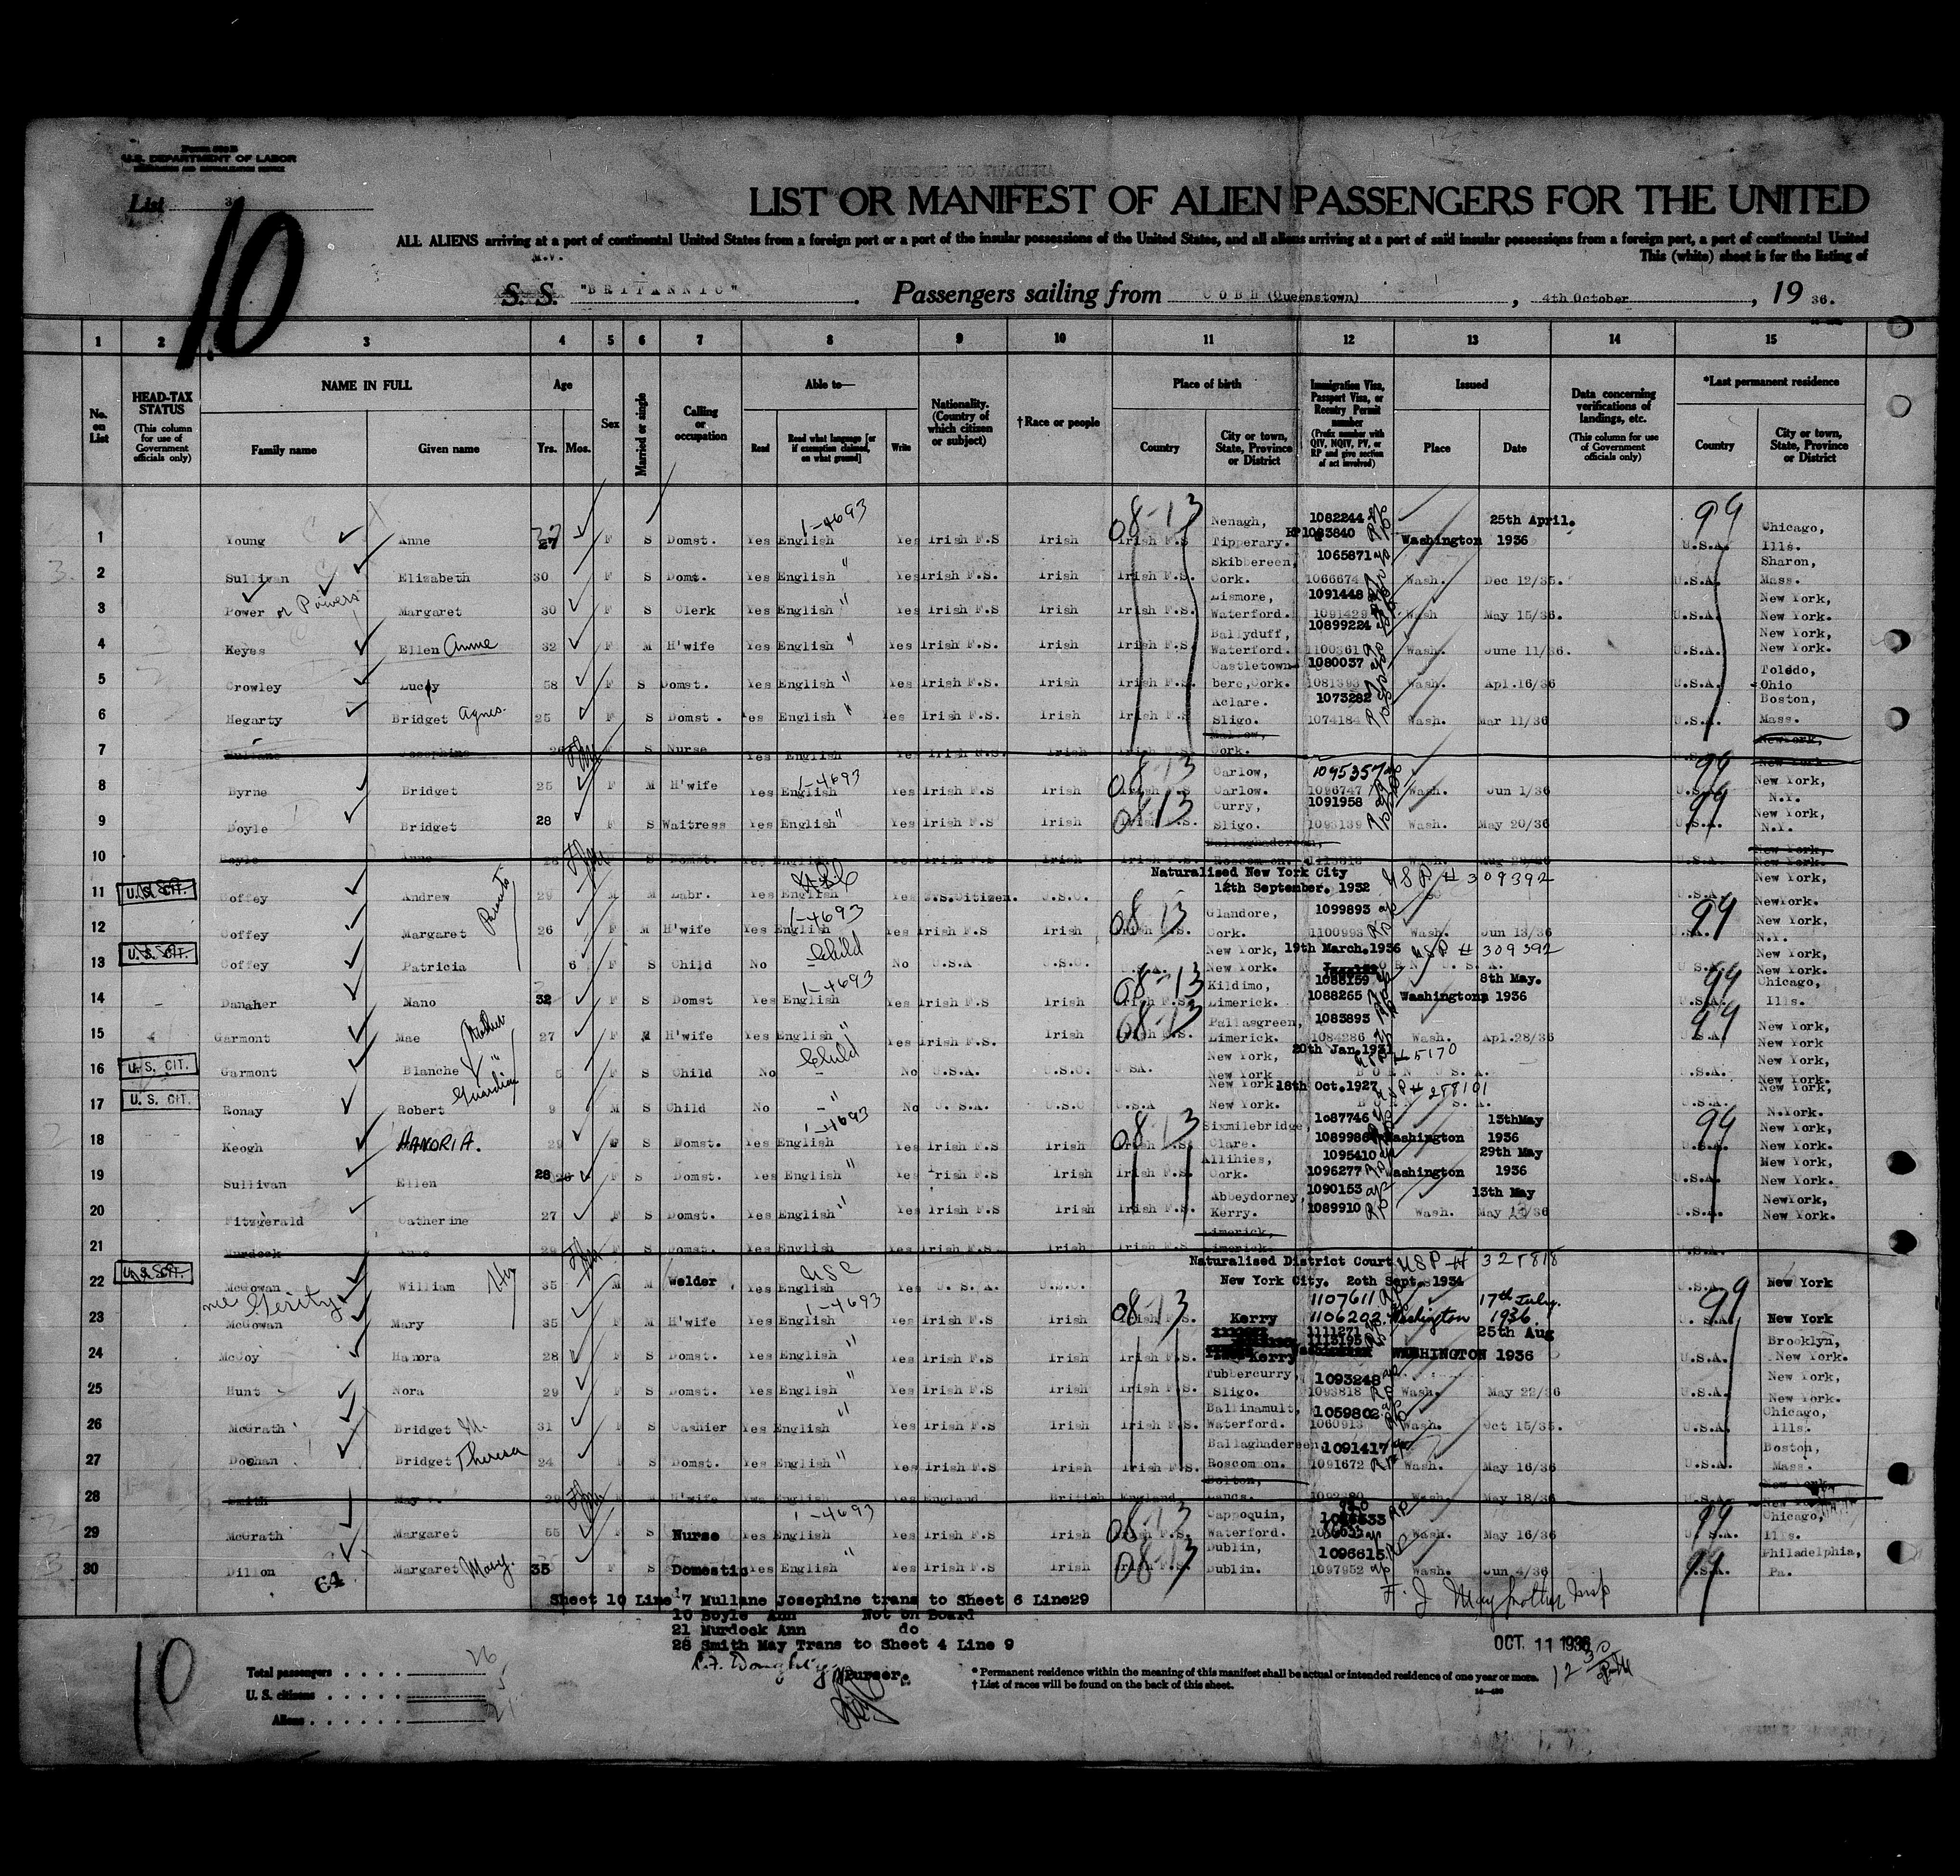 Form 500 B
U.S. DEPARTMENT OF LABOR
IMMIGRATION AND NATURALIZATION SERVICE
List 3
10
LIST OR MANIFEST OF ALIEN PASSENGERS FOR THE UNITED
ALL ALIENS arriving at a port of continental United States from a foreign port or a port of the insular possessions of the United States, and all aliens arriving at a port of said insular possessions from a foreign port, a port of continental United
This (white) sheet is for the listing of
M.V.
S. S. "BRITANNIC". Passengers sailing from COBH (Queenstown), 4th October, 19 36.
1 2 3 4 5 6 7 8 9 10 11 12 13 14 15
No. on List
HEAD-TAX STATUS (This column for use of Government officials only)
NAME IN FULL Family name Given name
Age Yrs. Mos.
Sex
Married or single
Calling or occupation
Able to— Read Read what language [or if exemption claimed, on what ground] Write
Nationality. (Country of which citizen or subject)
†Race or people
Place of birth Country City or town, State, Province or District
Immigration Visa, Passport Visa, or Reentry Permit number (Prefix number with QIV, NQIV, PV, or RP and give section of act involved)
Issued Place Date
Data concerning verifications of landings, etc. (This column for use of Government officials only)
*Last permanent residence Country City or town, State, Province or District
1 Young Anne 27 F S Domst. Yes English 1-4693 Yes Irish F.S Irish 08-13 Irish F.S Nenagh, Tipperary. 1082244 RP1083840 Washington 25th April. 1936 99 U.S.A. Chicago, Ills.
2 Sullivan Elizabeth 30 F S Domt. Yes English " Yes Irish F.S. Irish Irish F.S. Skibbereen, Cork. 1065871 1066674 Wash. Dec 12/35. U.S.A. Sharon, Mass.
3 Power or Powers Margaret 30 F S Clerk Yes English " Yes Irish F.S Irish Irish F.S. Lismore, Waterford. 1091448 1091429 Wash May 15/36. U.S.A. New York, New York.
4 Keyes Ellen Anne 32 F M H'wife Yes English " Yes Irish F.S Irish Irish F.S. Ballyduff, Waterford. 10899224 1100361 Wash. June 11/36. U.S.A. New York, New York.
5 Crowley Lucy 58 F S Domst. Yes English " Yes Irish F.S. Irish Irish F.S. Castletown bere, Cork. 1080037 1081393 Wash. Apl.16/36 U.S.A. Toledo, Ohio
6 Hegarty Bridget Agnes. 25 F S Domst. Yes English " Yes Irish F.S. Irish Irish F.S. Aclare. Sligo. 1073282 1074184 Wash. Mar 11/36 U.S.A. Boston, Mass.
7 Mullane Josephine 26 F S Nurse Yes English Yes Irish F.S. Irish Irish F.S. Mallow, Cork. New York, New York
8 Byrne Bridget 25 F M H'wife Yes English 1-4693 Yes Irish F.S Irish 08-13 Irish F.S Carlow, Carlow. 1095357 1096747 Wash. Jun 1/36 99 U.S.A. New York, N.Y.
9 Doyle Bridget 28 F S Waitress Yes English " Yes Irish F.S Irish 08-13 Irish F.S. Curry, Sligo. 1091958 1093139 Wash. May 20/36 99 U.S.A. New York, N.Y.
10 Doyle Anne S Domst. Yes English Yes Irish F.S Irish Irish F.S. Ballaghadereen, Roscommon. Wash. U.S.A. New York, New York.
11 U.S. CIT. Coffey Andrew Parents 29 M M Labr. Yes English Yes U.S.Citizen. U.S.C. Naturalised New York City 12th September. 1932 USP # 309392 U.S.A. New York, NewYork.
12 Coffey Margaret 26 F M H'wife Yes English 1-4693 Yes Irish F.S Irish 08-13 Irish F.S. Glandore, Cork. 1099893 1100993 Wash. Jun 13/36 99 New York, N.Y.
13 U.S. CIT. Coffey Patricia 6 F S Child No Child No U.S.A U.S.C. U.S.A. New York, New York. 19th March.1936 USP # 309392 BORN U.S.A. New York, New York.
14 Danaher Nano 32 F S Domst Yes English 1-4693 Yes Irish F.S Irish 08-13 Irish F.S. Kildimo, Limerick. 1086159 1088265 Washington 8th May. 1936 99 U.S.A. Chicago, Ills.
15 Garmont Mae Mother 27 F M H'wife Yes English " Yes Irish F.S. Irish 08-13 Irish F.S. Pallasgreen, Limerick. 1083893 1084286 Wash. Apl.28/36 99 U.S.A. New York, New York
16 U.S. CIT. Garmont Blanche " 5 F S Child No Child No U.S.A. U.S.C. U SA. New York, New York 20th Jan.1931 # 5170 BORN U.S.A. U.S.A. New York, New York.
17 U.S. CIT. Ronay Robert Guardian 9 M S Child No " No U. S.A. U.S.C U.S.A New York New York. 18th Oct.1927 USP # 258101 BORN U.S.A. U.S.A. New York, N.York.
18 Keogh HANORIA. 29 F S Domst. Yes English 1-4693 Yes Irish F.S Irish 08-13 Irish F.S. Sixmilebridge, Clare. 1087746 1089986 Washington 15thMay 1936 99 U.S.A. New York, New York.
19 Sullivan Ellen 28 F S Domst. Yes English " Yes Irish F.S Irish Irish F.S. Allihies, Cork. 1095410 1096277 Washington 29th May 1936 U.S.A. New York, New York.
20 Fitzgerald Catherine 27 F S Domst. Yes English " Yes Irish F.S Irish Irish F.S. Abbeydorney, Kerry. 1090153 1089910 Wash. 13th May May 13/36 U.S.A. NewYork, New York.
21 Murdock Anne 29 F S Domst. Yes English Yes Irish F.S Irish Irish F.S. Limerick, Limerick. U.S.A.
22 U.S. CIT. McGowan William 35 M M Welder Yes English USC Yes U. S. A. U.S.C. Naturalised District Court New York City. 20th Sept. 1934 USP # 328818 U.S.A. New York
23 nee Gerity McGowan Mary 35 F M H'wife Yes English 1-4693 Yes Irish F.S Irish 08-13 Irish F.S. Kerry 1107611 1106202 Washington 17th July. 1936 99 U.S.A. New York
24 McCoy Hanora 28 F S Domst. Yes English " Yes Irish F.S Irish Irish F.S. Kerry 1111271 1113195 WASHINGTON 25th Aug 1936 U.S.A. Brooklyn, New York.
25 Hunt Nora 29 F S Domst. Yes English " Yes Irish F.S Irish Irish F.S. Tubbercurry, Sligo. 1093248 1093818 Wash. May 22/36 U.S.A. New York, New York.
26 McGrath Bridget M. 31 F S Cashier Yes English " Yes Irish F.S Irish Irish F.S. Ballinamult, Waterford. 1059802 1060913 Wash. Oct 15/35. U.S.A. Chicago, Ills.
27 Doohan Bridget Theresa 24 F S Domst. Yes English " Yes Irish F.S Irish Irish F.S. Ballaghadereen Roscommon. 1091417 1091672 Wash. May 16/36 U.S.A. Boston, Mass.
28 Smith May 29 F H'wife English Yes England British England Bolton, Lancs. Wash. May 18/36 U.S.A. New York, New York
29 McGrath Margaret 55 F S Nurse Yes English 1-4693 Yes Irish F.S Irish 08-13 Irish F.S. Cappoquin, Waterford. Wash. May 16/36 99 U.S.A. Chicago, Ills.
30 Dillon Margaret Mary. 35 F S Domestic Yes English " Yes Irish F.S Irish 08-13 Irish F.S. Dublin, Dublin. 1096615 1097952 Wash. Jun 4/36 99 U.S.A. Philadelphia, Pa.
64
Sheet 10 Line 7 Mullane Josephine trans to Sheet 6 Line29
10 Boyle Ann Not on Board
21 Murdock Ann do
28 Smith May Trans to Sheet 4 Line 9
Purser.
OCT. 11 1936
10
Total passengers . . . . 26
U. S. citizens . . . . . 5
Aliens . . . . . . 21
* Permanent residence within the meaning of this manifest shall be actual or intended residence of one year or more.
† List of races will be found on the back of this sheet.